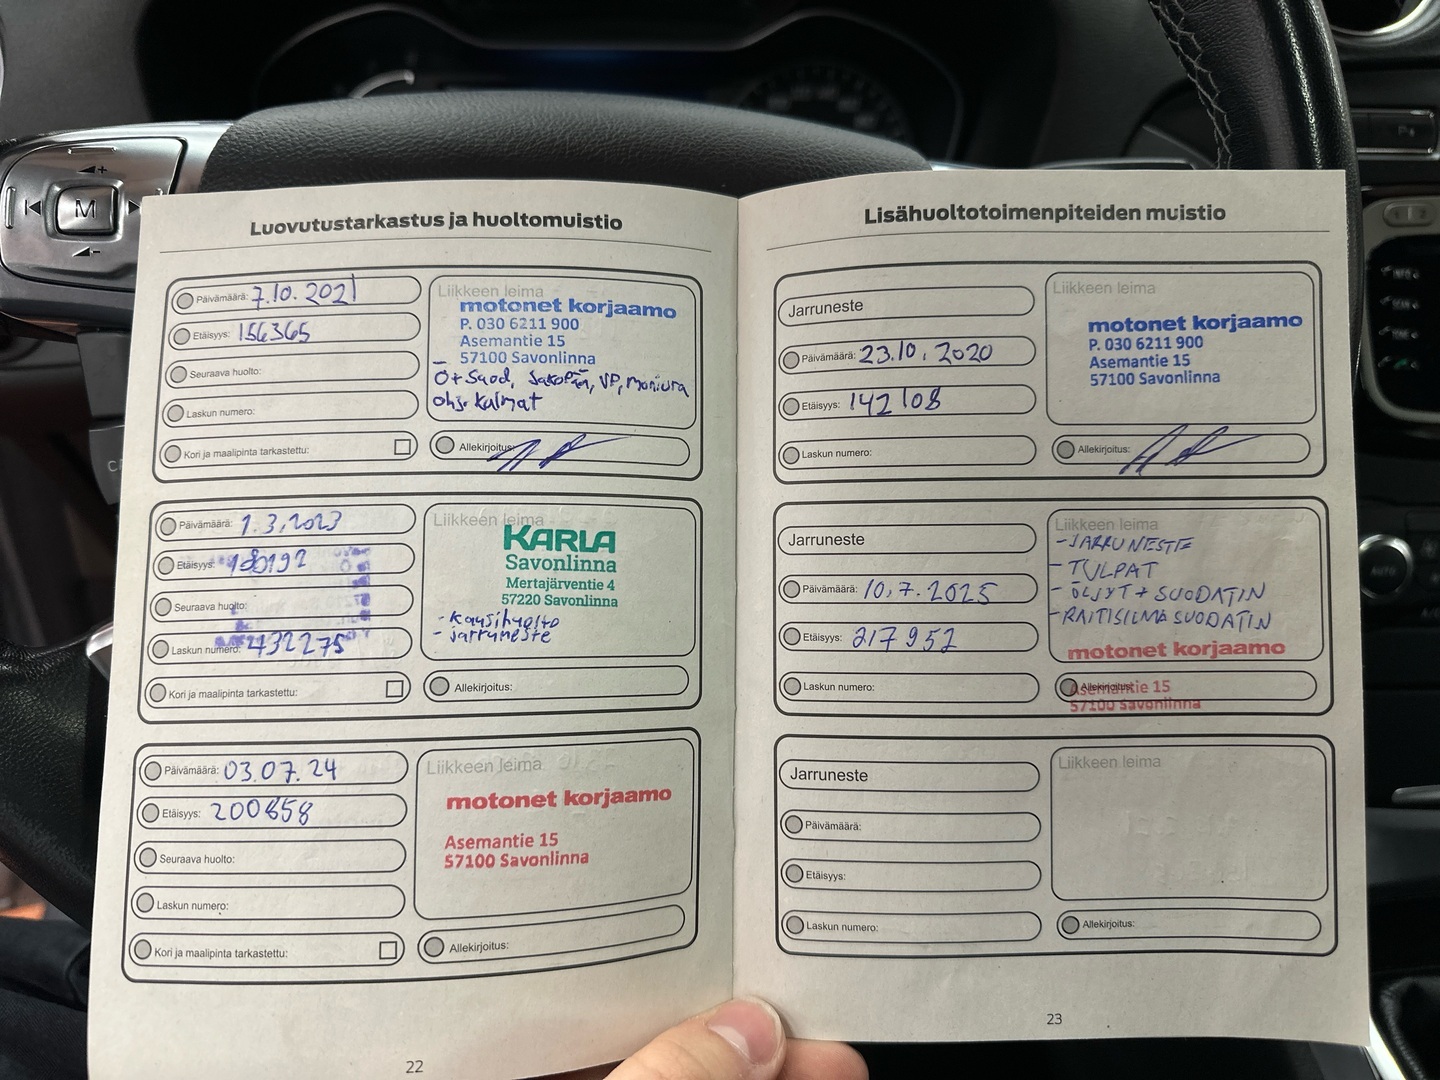 Luovutustarkastus ja huoltomuistio
Päivämäärä: 7.10.2021
Etäisyys: 156365
Seuraava huolto:
Laskun numero:
Kori ja maalipinta tarkastettu:
Liikkeen leima
motonet korjaamo
P. 030 6211 900
Asemantie 15
57100 Savonlinna
Ö+Suod, Jakopää, VP, moniura
ohj. kulmat
Allekirjoitus:
Päivämäärä: 1.3.2023
Etäisyys: 180192
Seuraava huolto:
Laskun numero: 432275
Kori ja maalipinta tarkastettu:
Liikkeen leima
KARLA
Savonlinna
Mertajärventie 4
57220 Savonlinna
- Kausihuolto
- jarruneste
Allekirjoitus:
Päivämäärä: 03.07.24
Etäisyys: 200858
Seuraava huolto:
Laskun numero:
Kori ja maalipinta tarkastettu:
Liikkeen leima
motonet korjaamo
Asemantie 15
57100 Savonlinna
Allekirjoitus:
22
Lisähuoltotoimenpiteiden muistio
Jarruneste
Päivämäärä: 23.10.2020
Etäisyys: 142108
Laskun numero:
Liikkeen leima
motonet korjaamo
P. 030 6211 900
Asemantie 15
57100 Savonlinna
Allekirjoitus:
Jarruneste
Päivämäärä: 10.7.2025
Etäisyys: 217952
Laskun numero:
Liikkeen leima
- JARRUNESTE
- TULPAT
- ÖLJYT + SUODATIN
- RAITISILMA SUODATIN
motonet korjaamo
Allekirjoitus:
Asemantie 15
57100 Savonlinna
Jarruneste
Päivämäärä:
Etäisyys:
Laskun numero:
Liikkeen leima
Allekirjoitus:
23
M
AUTO